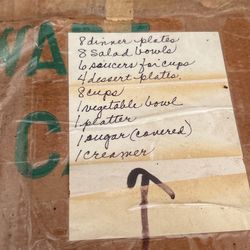 8 dinner plates
8 Salad bowls
6 saucers for cups
4 dessert plates
8 cups
1 vegetable bowl
1 platter
1 sugar (covered)
1 creamer